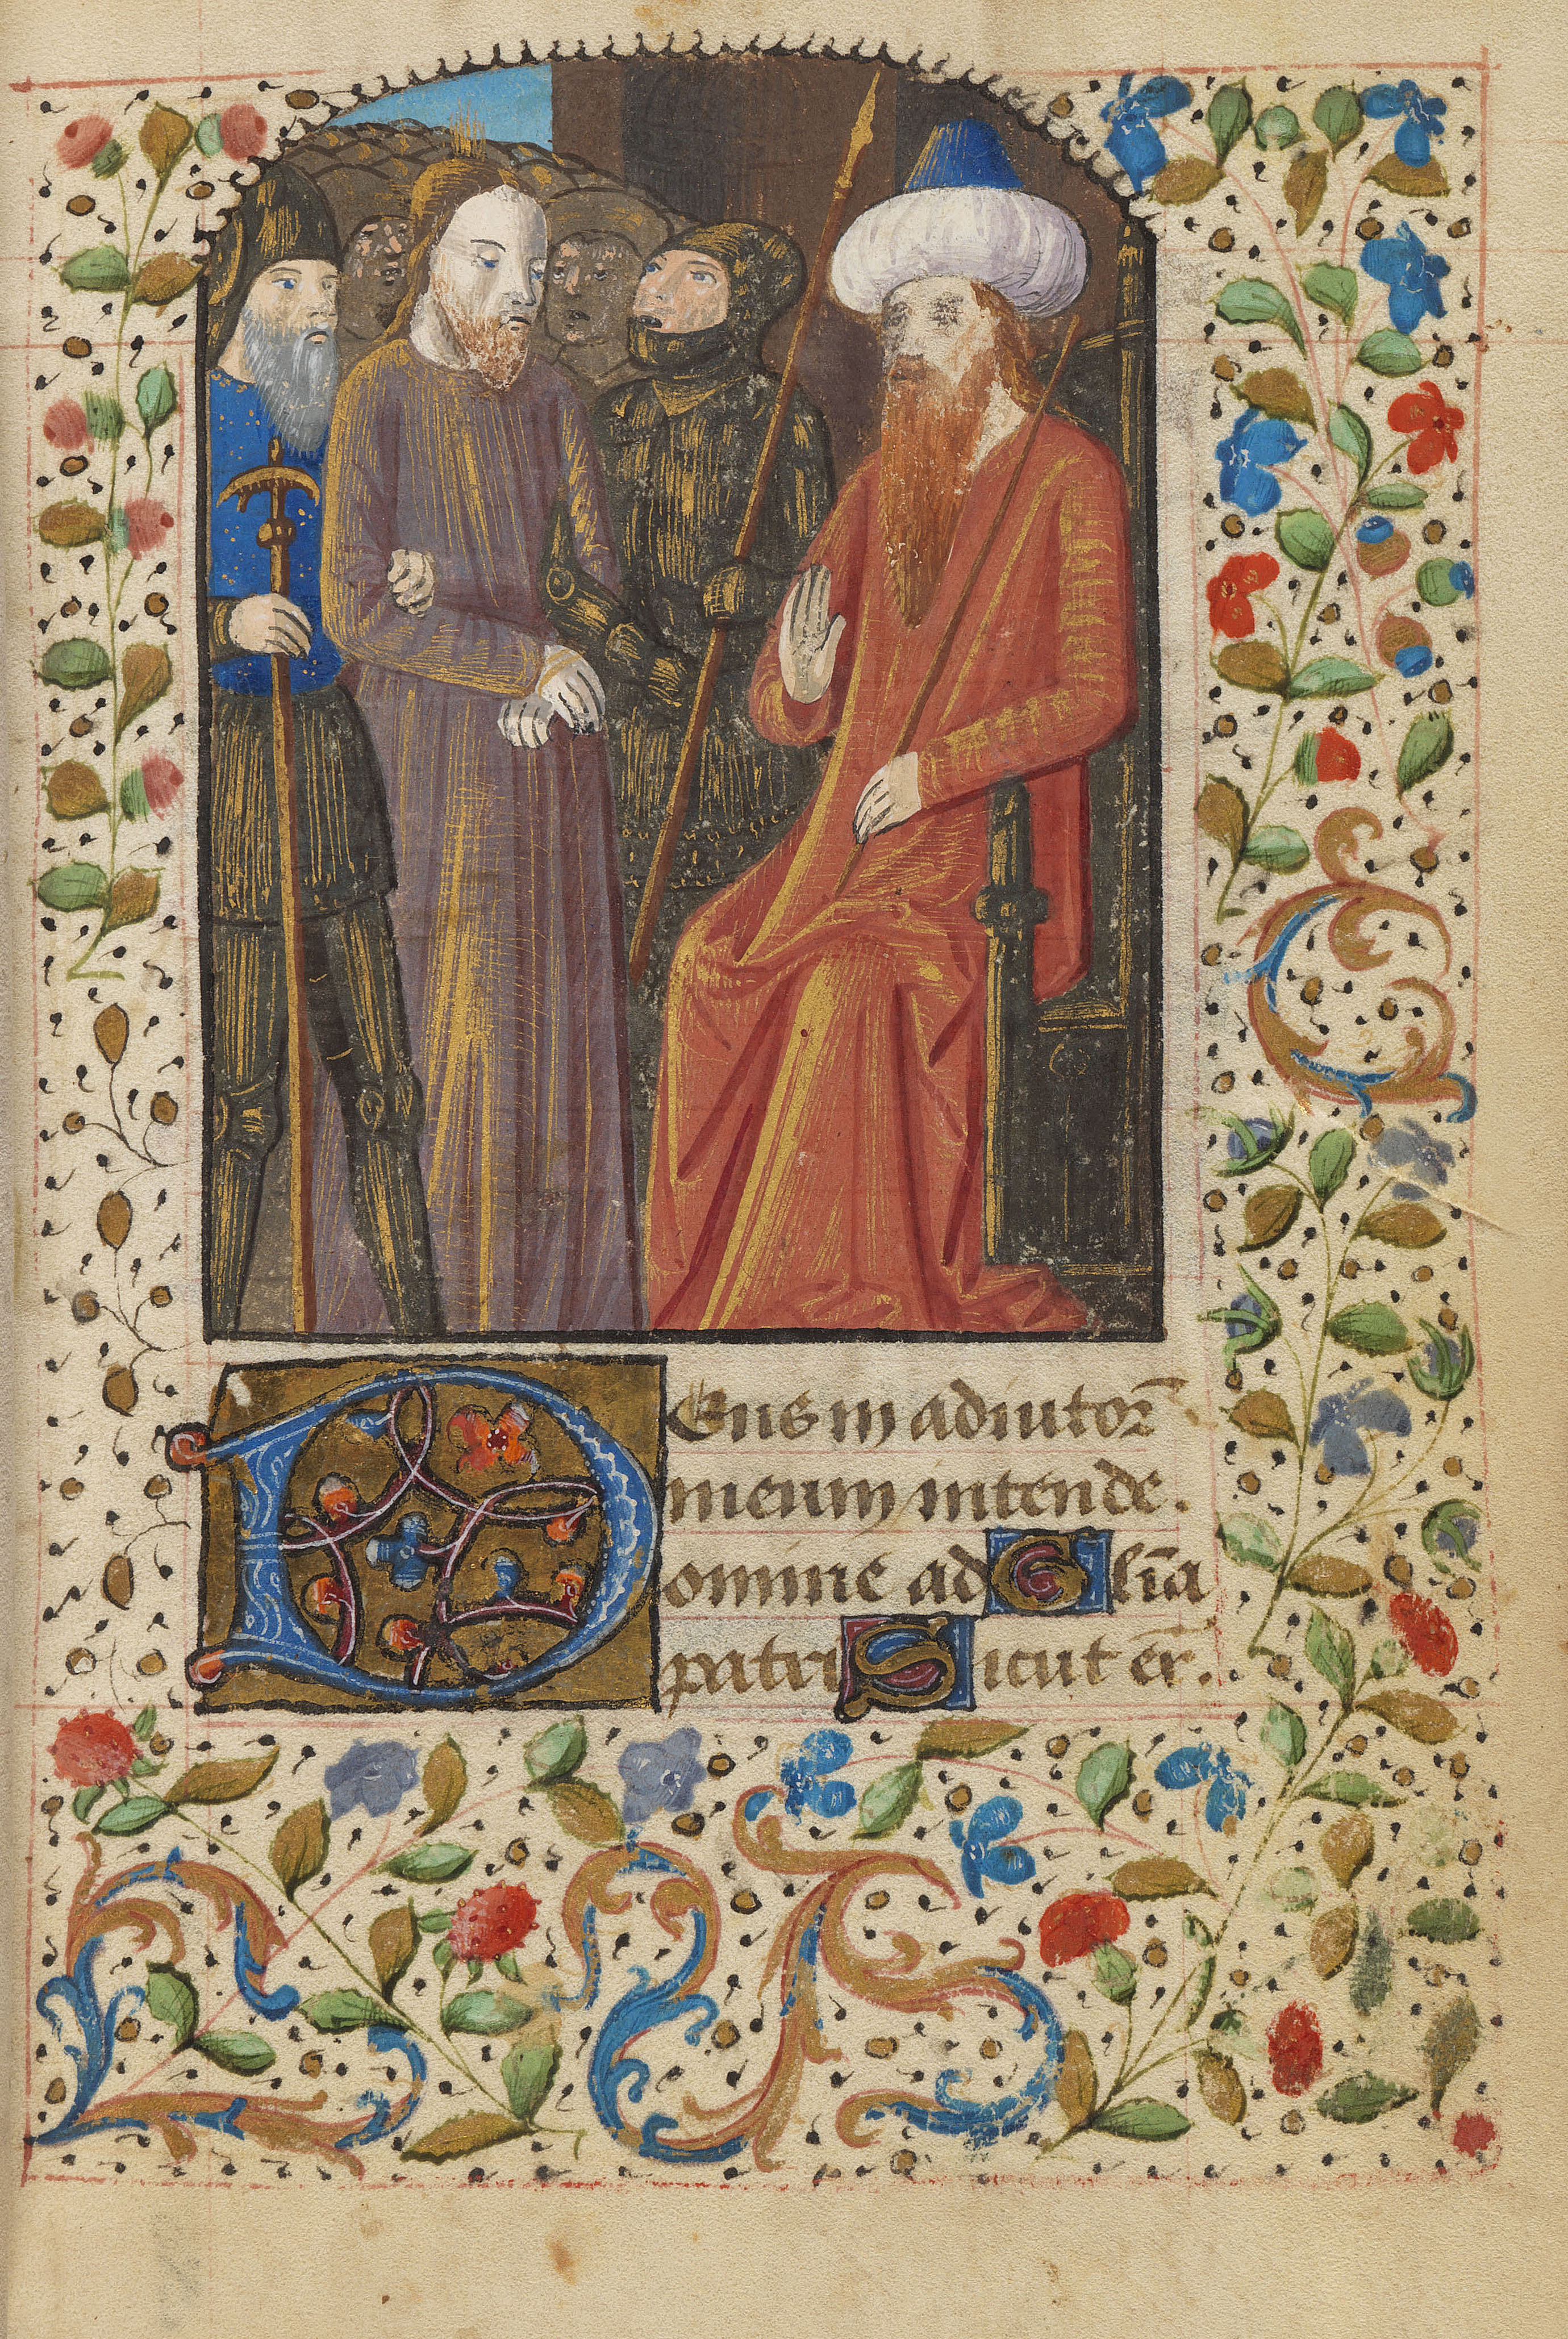 Deus in adiutor̄
meum intende.
omine ad Glīa
patri Sicut er̄.